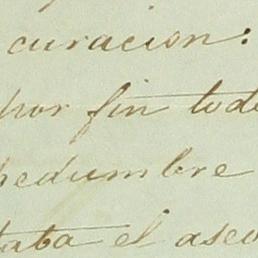 curacion:
por fin tod
edumbre
taba el aseo